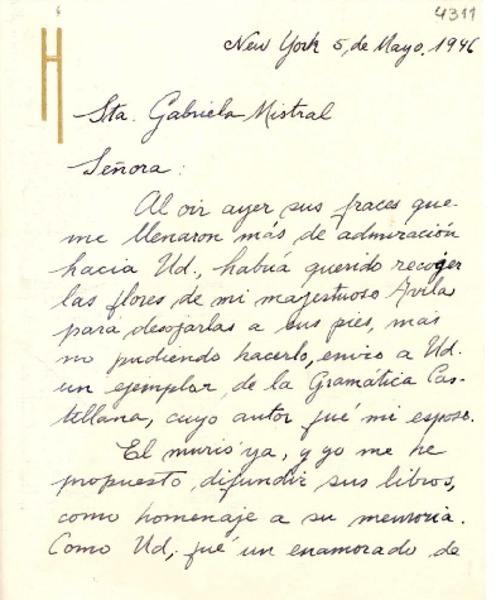 4311
H
New York 5, de Mayo, 1946
Sta. Gabriela Mistral
Señora:
Al oir ayer sus fraces que
me llenaron más de admiración
hacia Ud., habría querido recojer
las flores de mi majestuoso Avila
para desojarlas a sus pies, mas
no pudiendo hacerlo, envio a Ud.
un ejemplar, de la Gramática Cas-
tellana, cuyo autor fué mi esposo.
El murió ya, y yo me he
propuesto, difundir sus libros,
como homenaje a su memoria.
Como Ud, fué un enamorado de